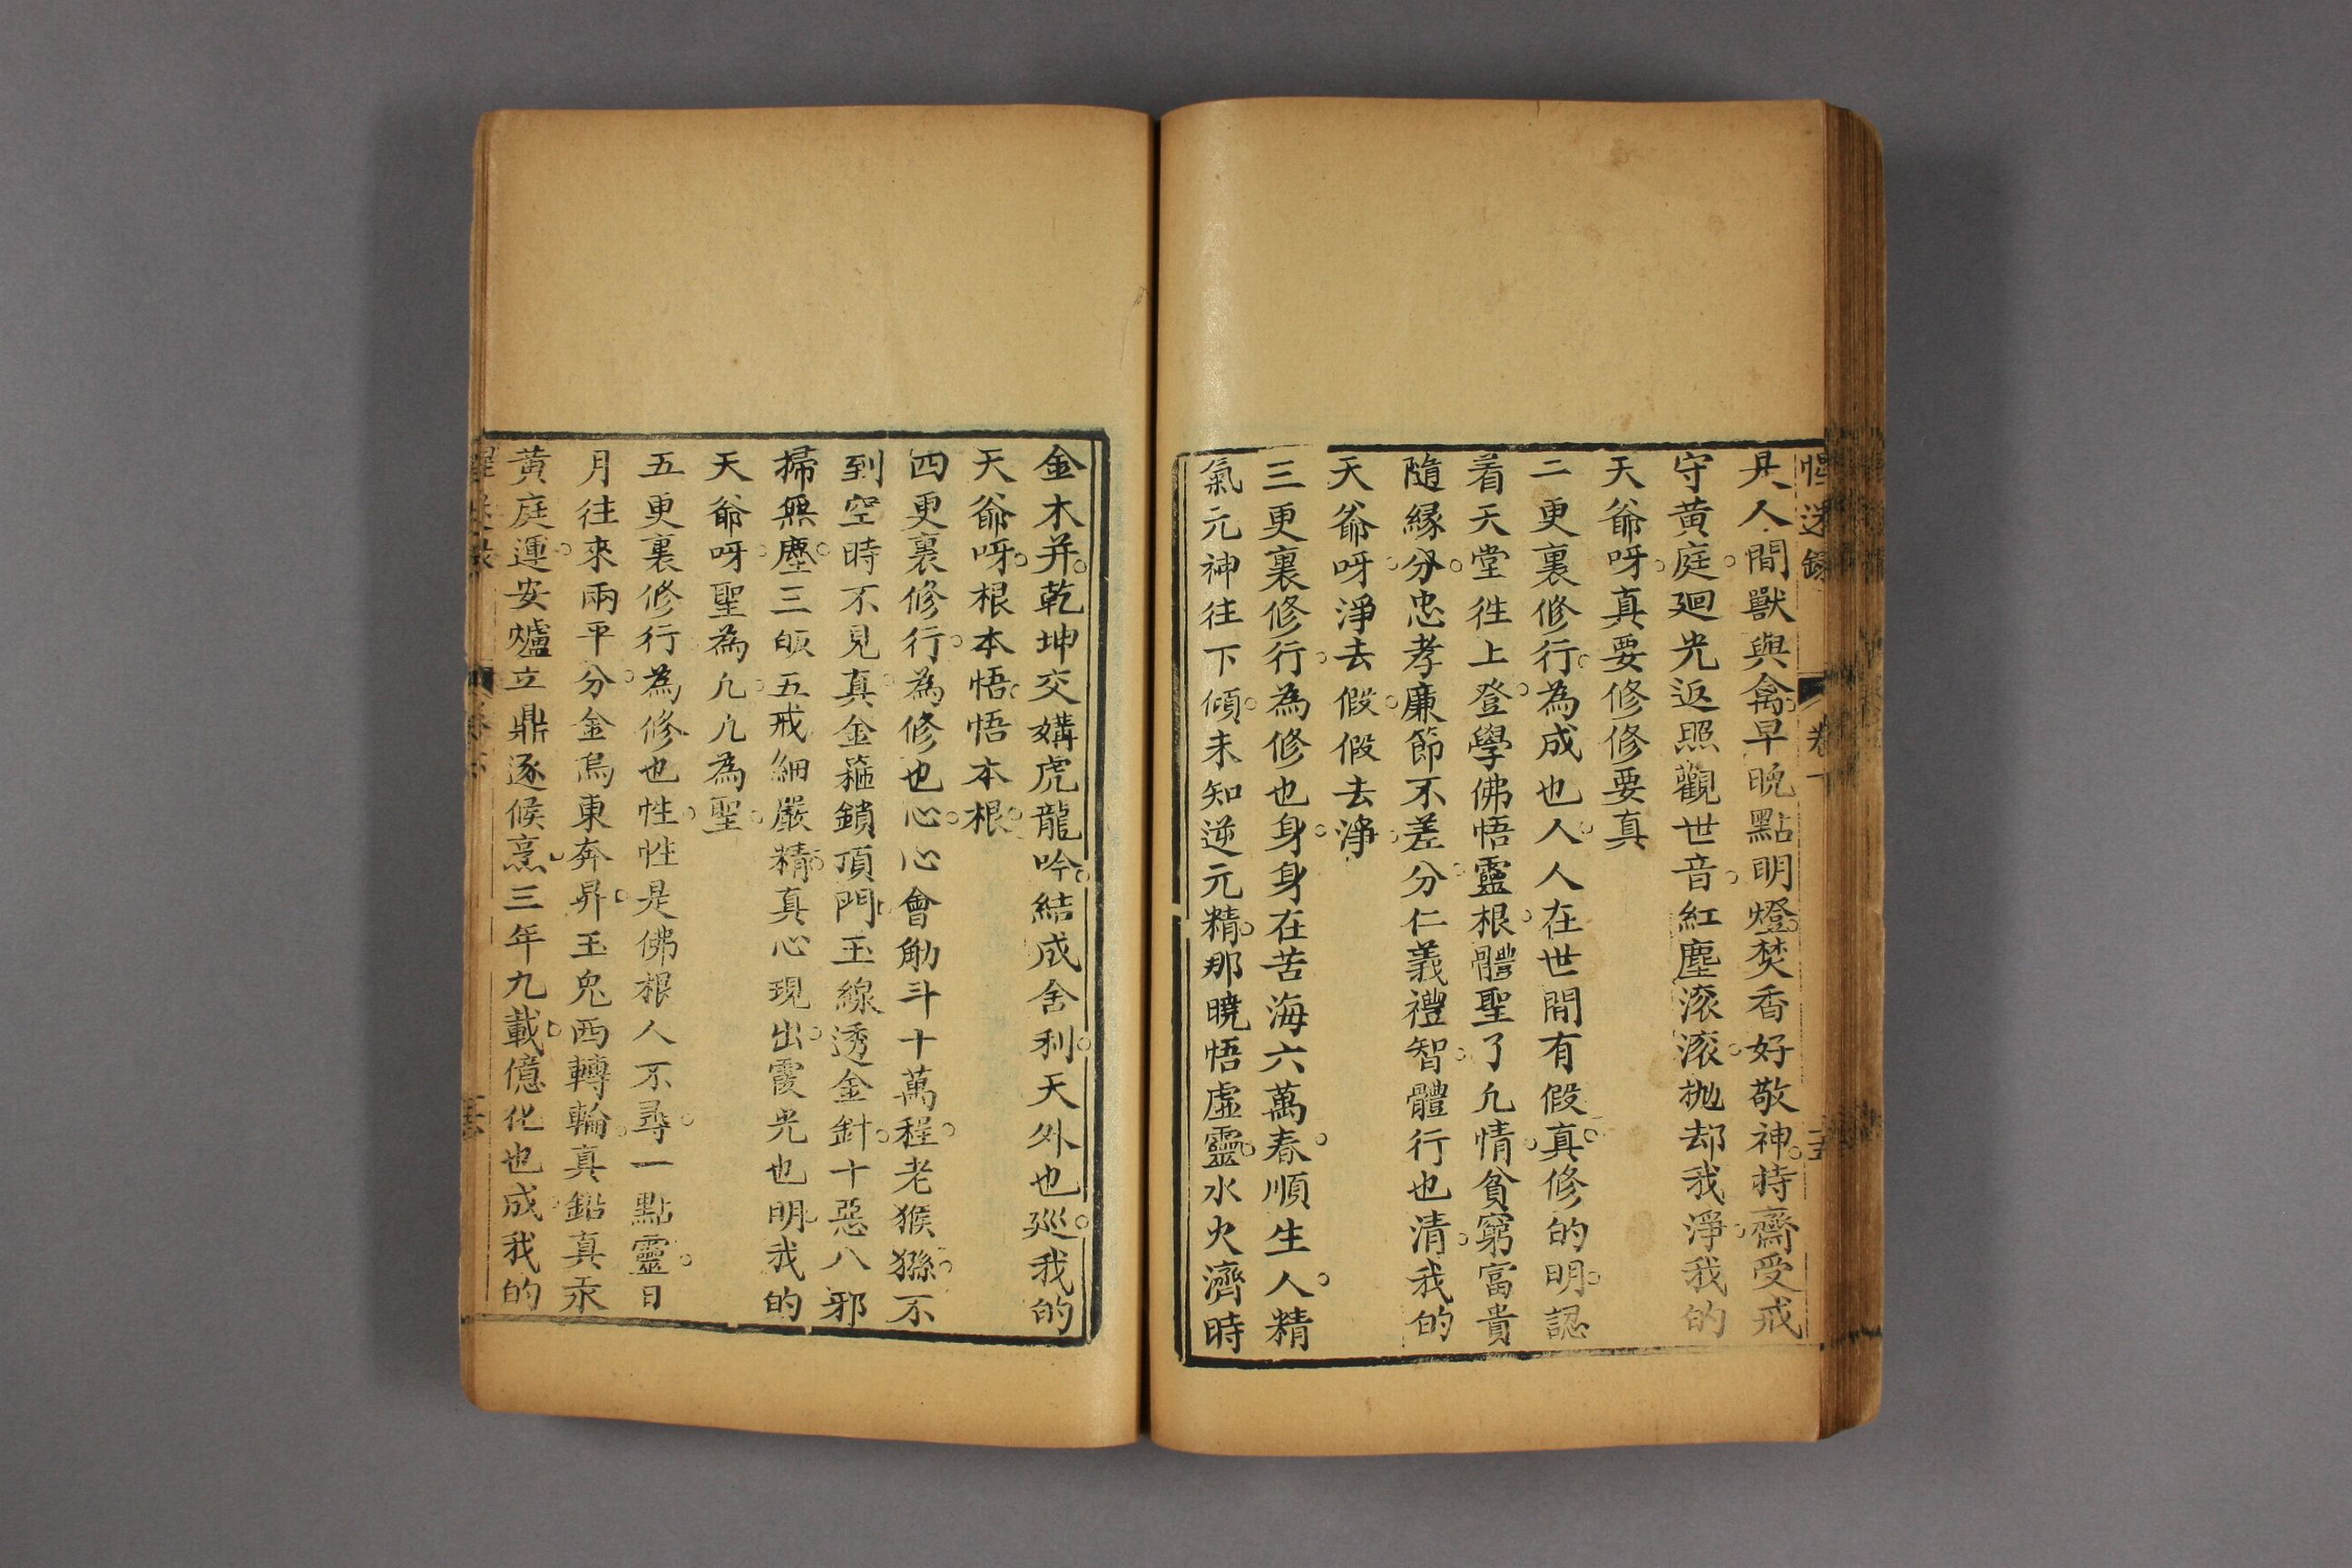 人間獸與禽早晚點明燈焚香好敬神持齋受戒
守黃庭廻光返照觀世音紅塵滚滚抛却我淨我的
天爺呀真要修修要真
二更裏修行為成也人人在世間有假真修的明認
着天堂徃上登學佛悟靈根體聖了凢情貧窮富貴
隨緣分忠孝廉節不差分仁義禮智體行也清我的
天爺呀淨去假假去淨
三更裏修行為修也身身在苦海六萬春順生人精
氣元神往下傾未知逆元精那曉悟虛靈水火濟時
金木并乾坤交媾虎龍吟結成舍利天外也廵我的
天爺呀根本悟悟本根
四更裏修行為修也心心會觔斗十萬程老猴猻不
到空時不見真金箍鎖頂門玉線透金針十惡八邪
掃無塵三皈五戒細嚴精真心現出霞光也明我的
天爺呀聖為凢凢為聖
五更裏修行為修也性性是佛根人不尋一點靈日
月往來兩平分金烏東奔昇玉兔西轉輪真鉛真汞
黃庭運安爐立鼎逐候烹三年九載億化也成我的